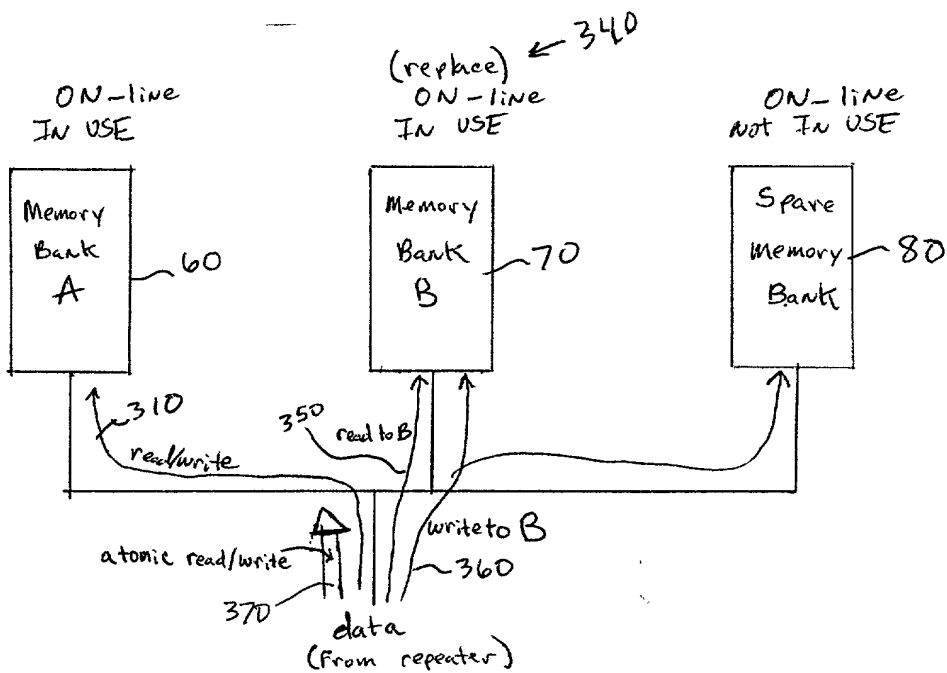 340
(replace)
ON-line
IN USE
ON-line
IN USE
ON-line
not IN USE
Memory
Bank
A
60
Memory
Bank
B
70
Spare
Memory
Bank
80
310
read/write
350
read to B
write to B
360
atomic read/write
370
data
(From repeater)